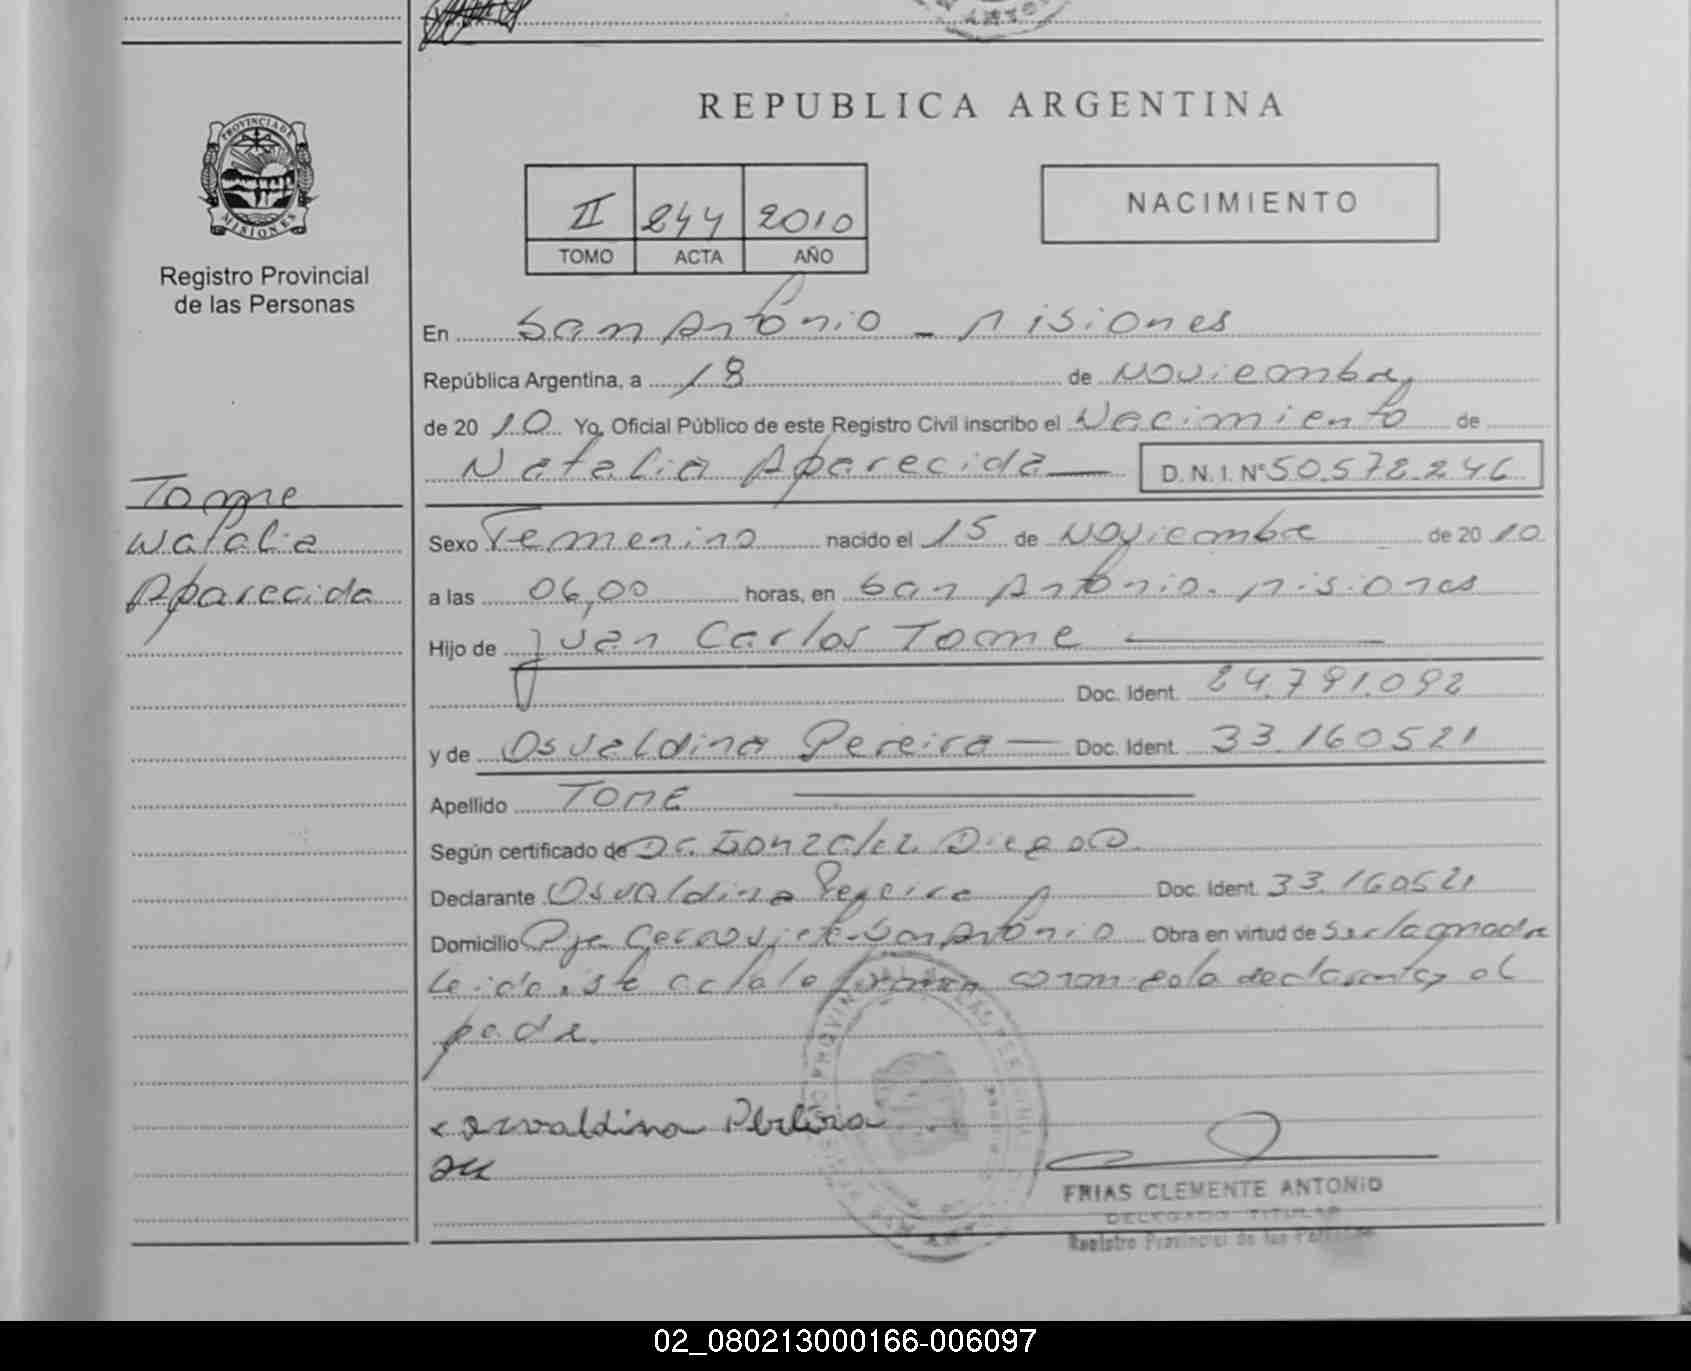 REPUBLICA ARGENTINA
PROVINCIA DE
MISIONES
Registro Provincial
de las Personas
II 244 2010
TOMO ACTA AÑO
NACIMIENTO
En San Antonio - Misiones
República Argentina, a 18 de Noviembre
de 2010 Yo, Oficial Público de este Registro Civil inscribo el Nacimiento de
Natalia Aparecida D.N.I. N° 50.572.246
Tome
Natalia
Aparecida
Sexo Femenino nacido el 15 de Noviembre de 2010
a las 06,00 horas, en San Antonio. Misiones
Hijo de Juan Carlos Tome
Doc. Ident. 24.791.092
y de Osvaldina Pereira Doc. Ident. 33.160521
Apellido TOME
Según certificado de Dr. Gonzalez Diego
Declarante Osvaldina Pereira Doc. Ident. 33.160521
Domicilio Pje San Antonio Obra en virtud de Ser la madre
Leida este acta la firman conmigo la declarante y el
padre.
Osvaldina Pereira
FRIAS CLEMENTE ANTONIO
DELEGADO TITULAR
Registro Provincial de las Personas
02_080213000166-006097